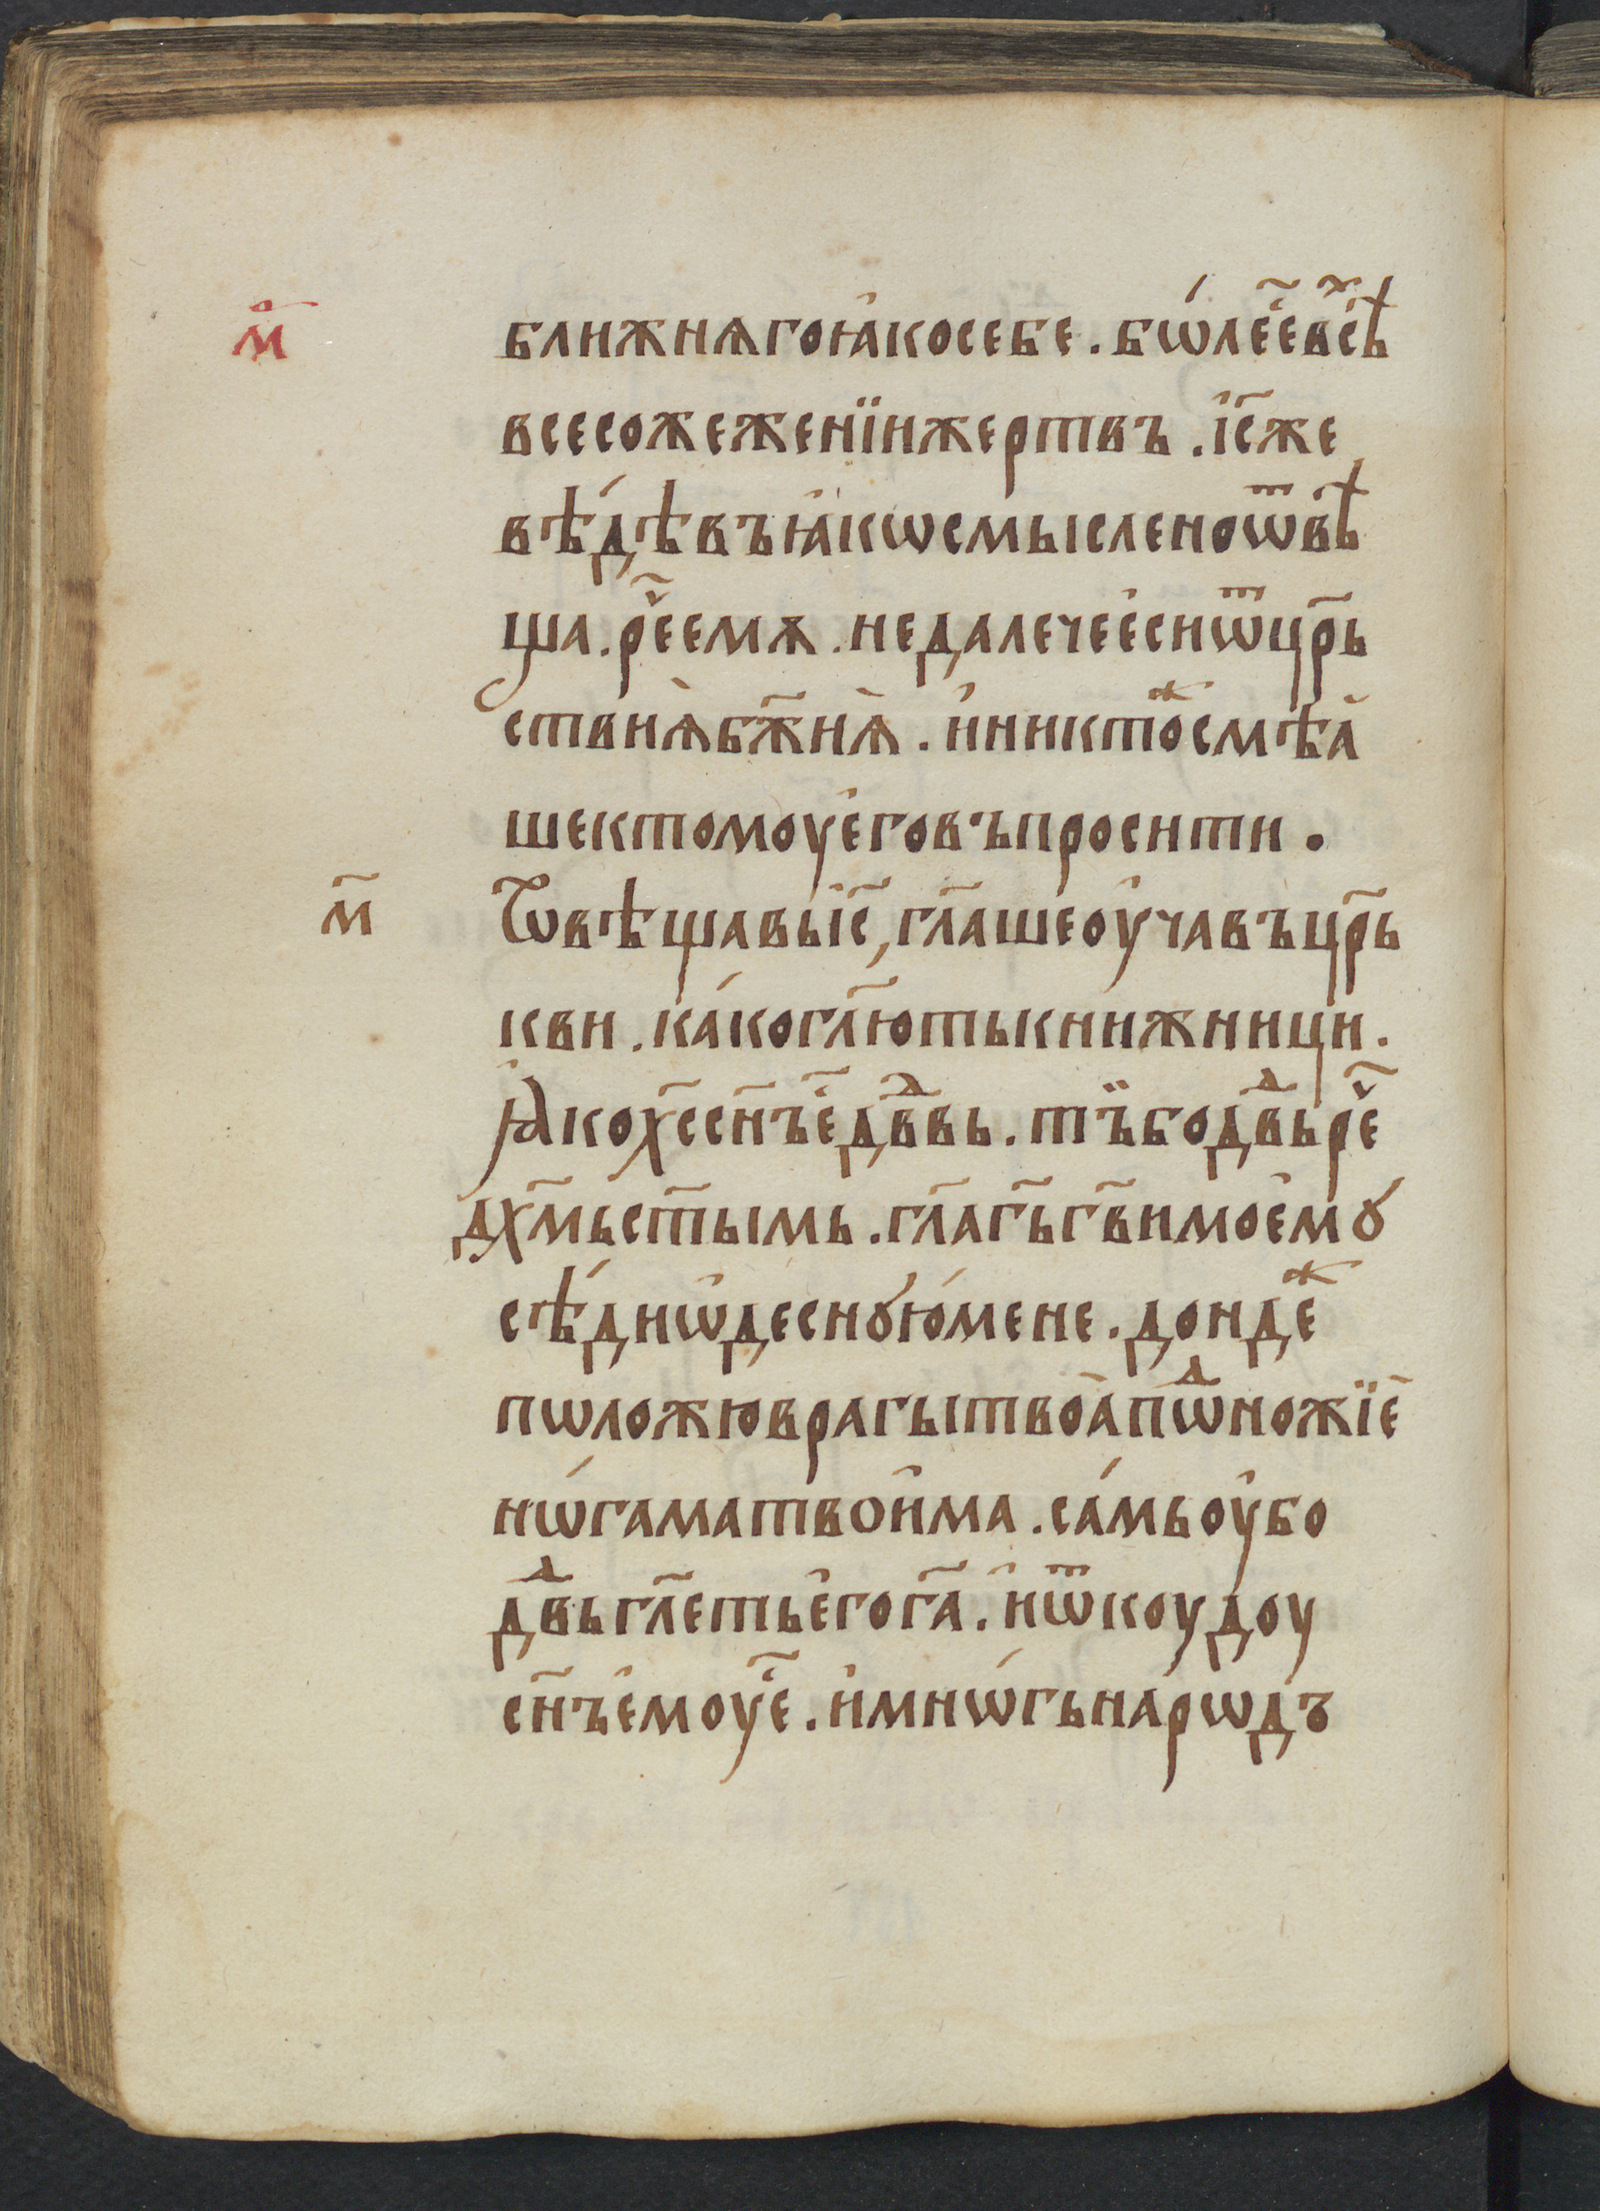 м҃
ближнѧгоꙗ҆косебе . бѡ́лее҆҃вⷯсѣ҆
всесожеженїижертвъ . і҆с҃же
вѣ́дѣвъꙗ҆кѡсмысленоѿвѣ
ща . рⷱ҇еемѫ . недалечеє҆сиѿцр҃ь
ствиѧ̀бж҃иѧ̀ . и҆никтоⷤсмѣа҆
шектомоуе҆говъпросити .
м҃
Ѿвѣщавьі҆с҃, гл҃ашеоу҆чавъцр҃ь
кви . ка́когл҃ютькнижници .
Ꙗ҆кох҃ссн҃ъе҆҃двⷣвь . тъ̈бодвⷣьрⷱ҇е
дх҃мьст҃ымь . гл҃агь҃гв҃имое҆мꙋ
сѣ́диѡ҆деснꙋю́мене . дондеⷤ
пѡложюврагытвоа҆пѡⷣножїе҆
нѡ́гаматвои҆ма . са́мьоу҆бо
двⷣьгл҃етье҆гог҃а . и҆ѿкоудоу
сн҃ъе҆моуе҆҃ . и҆мнѡ́гьнарѡдъ